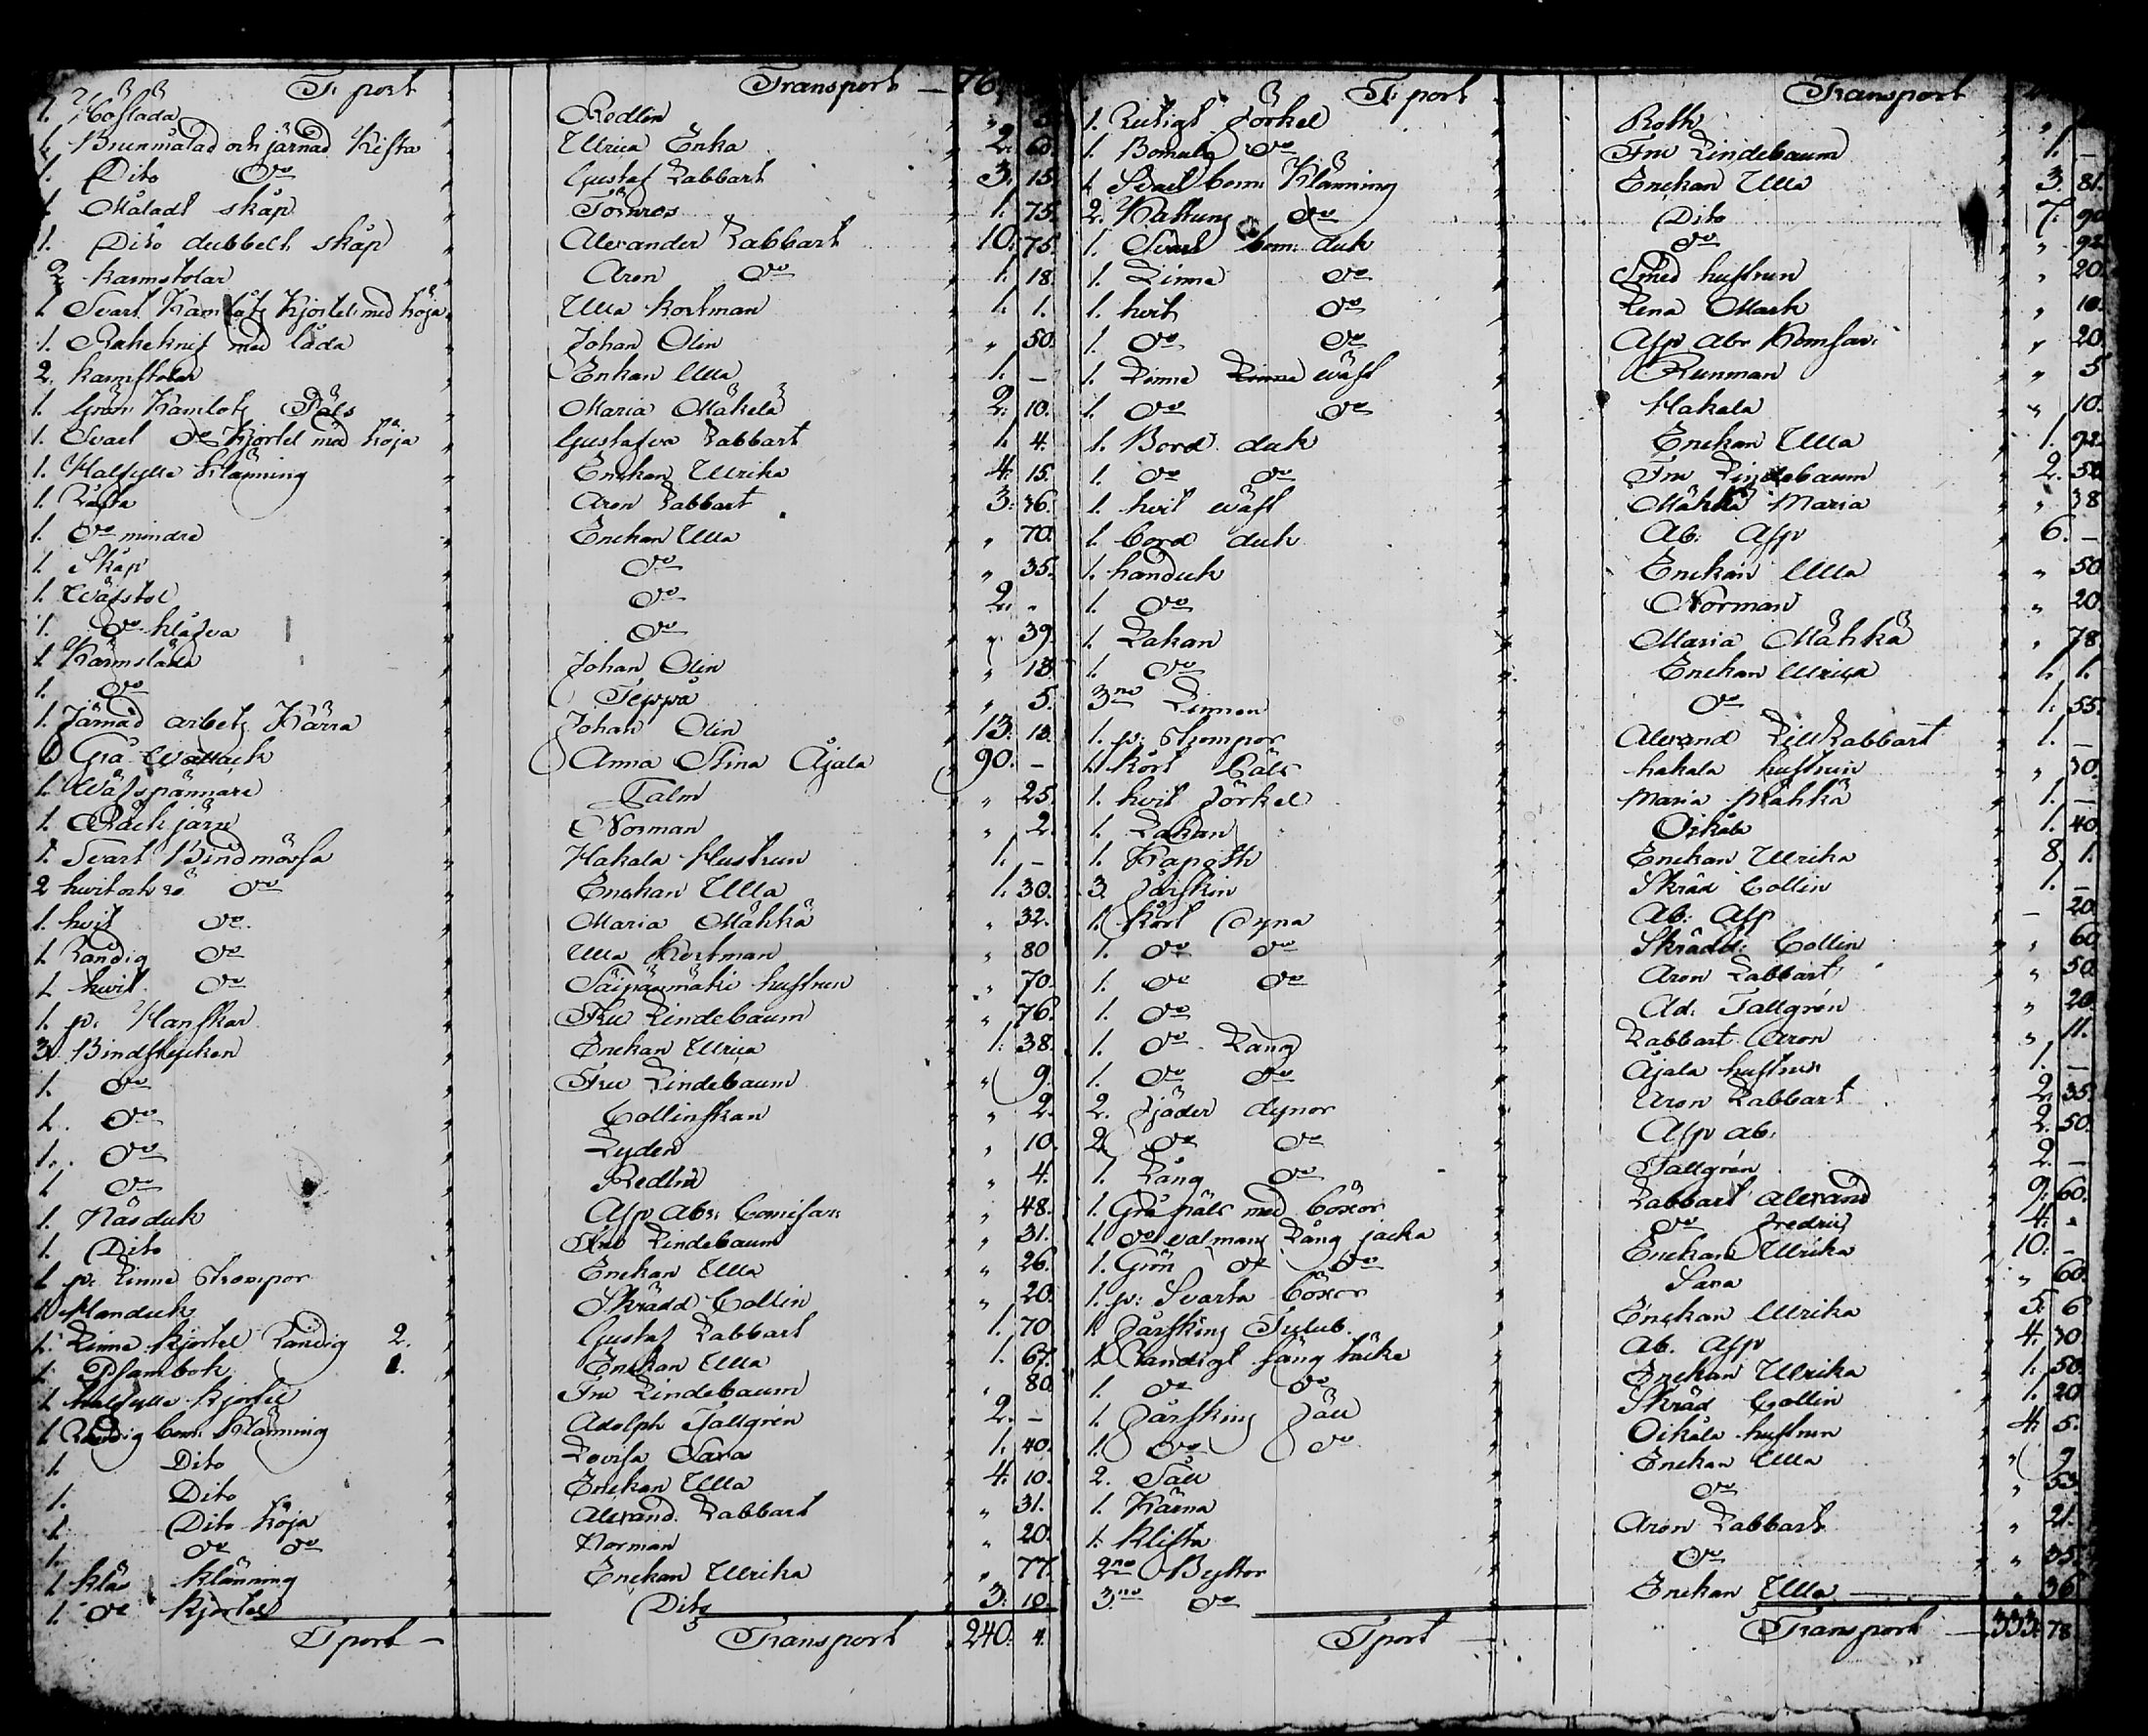 T: port Transport — 76.
1. Redlin
1. Brunmålad och järnad Kista Ulrica Enka 2. 60.
1. Dito Do Gustaf Labbart 3. 15.
1. Måladt skåp Törnros 1. 75.
1. Dito dubbelt skåp Alexander Labbart 10. 75.
2 karmstolar Aron Do 1. 18.
1 Svart Kamlots Kjortel med tröja Ulla Kortman 1. 1.
1. Rakeknif med låda Johan Olin " 50.
2. karmstolar Enkan Ulla 1. —
1. Grön Kamlots Päls Maria Mäkelä 2. 10.
1. Svart Do Kjortel med tröja Gustafva Labbart 1. 4.
1. Halfylle Klänning Enckan Ulrika 4. 15.
1. Aron Labbart 3. 36.
1. Do mindre Enckan Ulla " 70.
1 Skåp Do " 35.
1. Wäfstol Do 2. "
1. Do klafva Do " 39.
1 Johan Olin " 13.
1. Do Teppä " 5.
1. Järnad arbets Kärra Johan Olin 13. 13.
1. Grå Wallack Anna Stina Äjälä 90. —
1. Wäfspännare Talm " 25.
1. Norman " 2.
1. Svart Bindmössa Hakala Hustrun 1. —
2 hvit och rö Do Enckan Ulla 1. 30.
1. hvit Do Maria Mähkä " 32.
1 Randig Do Ulla Kortman " 80
1 hvit Do hustrun " 70.
1. p: Hanskar Fru Lindebaum " 76.
3. Bindstycken Enckan Ulrica 1. 38.
1. Do Fru Lindebaum " 9.
1. Do Collinskan " 2.
1. Do Lyden " 10.
1 Do Redlin " 4.
1. Näsduk Asp Abr: Comisar: " 48.
1. Dito Fru Lindebaum " 31.
1 p: Linne Strumpor Enckan Ulla " 26.
1 Handuk Skrädd Collin " 20.
1. Linne Kjortel Randig 2. Gustaf Labbart 1. 70
1. Psalmbok 1. Enckan Ulla 1. 67.
1 halfylle kjortel Fru Lindebaum " 80.
1 Randig bom: Klänning Adolph Tallgrén 2. —
1. Dito Lovisa Sara 1. 40.
1. Dito Enckan Ulla 4. 10.
1. Dito tröja Alexand. Labbart " 31.
1. Do Do Norman " 20.
1 Kläd klänning Enckan Ulrika " 77.
1. Do kjortel Dito 3. 10.
Tport — Transport 240. 4.
T: port Transport
1. Rutigt Förkel Roth
1. Bomuls Do Fru Lindebaum 1. —
1. Svart bom: Klänning Enckan Ulla 3. 81.
2. Kattuns Do Dito 7. 90
1. Svart bom: duk Do " 92.
1. Linne Do Smed hustrun " 20.
1. hvit Do Lena Mark " 10.
1. Do Do Asp Abr Komsar: " 20.
1. Linne wäst Runman " 5
1. Do Do Hakala " 10.
1. Bord duk Enckan Ulla 1. 92.
1. Do Do Fru Lindebaum 2. 50
1. hvit wäst Mähkä Maria " 38
1. bord duk Ab: Asp 6. —
1. handuk Enckan Ulla " 50
1. Do Norman " 20.
1. Lakan Maria Mähkä " 78.
1. Do Enckan Ulrica 1. 1.
3ne Linnen Do 1. 55.
1. p: Strumpor Alexand Labbart 1. —
1. kort Päls hakala hustrun " 30.
1. hvit Förkel Maria Mähkä 1. —
1. Lakan Oikala 1. 40.
1. Kapott Enckan Ulrika 8. 1.
3. Fårskin Skräd Collin 1. —
1. Kort Dyna Ab: Asp — 20.
1. Do Do Skrädd: Collin " 60
1. Do Do Aron Labbart " 50.
1. Do Ad: Tallgrén " 20.
1. Do Lång Labbart Aron " 11.
1. Do Do Äjälä hustrun 1. —
2. Fjäder dynor Aron Labbart 2. 35.
2. Do Do Asp ab: 2. 50.
1. Lång Do Tallgrén 2. —
1. Grå päls med böxor Labbart Alexand 9. 60.
1 Do valmans Lång jacka Do Fredric 4. "
1. Grön Do Do Enckan Ulrika 10. —
1. p: Svarta böxor Sara " 60.
1. Fårskins Tulub Enckan Ulrika 5. 6
1. Randigt säng täcke Ab. Asp 4. 30
1. Do Do Enckan Ulrika 1. 50.
1. Fårskins Fäll Skräd Collin 1. 20
1. Do Do Oikala hustrun 4. 5.
2. Såll Enckan Ulla " 9
1. Kärna Do " 53.
1. Klifta Aron Labbart " 21.
2ne Byttor Do " 35.
3ne Do Enckan Ulla " 36
Tport — Transport — 333. 78